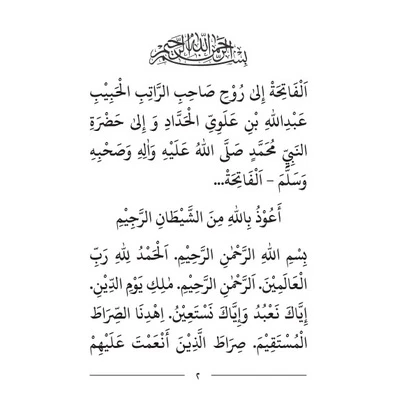 بِسْمِ اللهِ الرَّحْمٰنِ الرَّحِيْمِ
اَلْفَاتِحَةْ إِلىٰ رُوْحِ صَاحِبِ الرَّاتِبِ الْحَبِيْبِ
عَبْدِاللهِ بْنِ عَلَوِيِّ الْحَدَّادِ وَ إِلىٰ حَضْرَةِ
النَّبِيِّ مُحَمَّدٍ صَلَّى اللهُ عَلَيْهِ وَاٰلِهِ وَصَحْبِهِ
وَسَلَّمَ – اَلْفَاتِحَةْ...
أَعُوْذُ بِاللهِ مِنَ الشَّيْطَانِ الرَّجِيْمِ
بِسْمِ اللهِ الرَّحْمٰنِ الرَّحِيْمِ. اَلْحَمْدُ لِلّٰهِ رَبِّ
الْعَالَمِيْنَ. اَلرَّحْمٰنِ الرَّحِيْمِ. مٰلِكِ يَوْمِ الدِّيْنِ.
إِيَّاكَ نَعْبُدُ وَإِيَّاكَ نَسْتَعِيْنُ. اِهْدِنَا الصِّرَاطَ
الْمُسْتَقِيْمَ. صِرَاطَ الَّذِيْنَ أَنْعَمْتَ عَلَيْهِمْ
٢